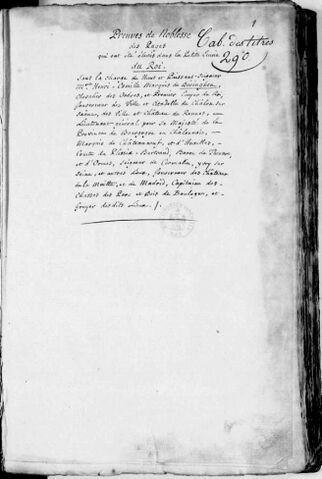 1
Preuves de Noblesse
des Pages
Cab. des titres
qui ont été élevés dans la Petite Ecurie
290
du Roi.
Sous la charge de Haut et Puissant Seigneur
Mre Henri-Camille Marquis de Beringhen,
Chevalier des Ordres, et Premier Ecuyer du Roi,
Gouverneur des Ville et Citadelle de Châlon sur
Saône, des Ville et Château de
Lieutenant général pour sa Majesté de la
Province de Bourgogne en Châlonois,
Marquis de Châteauneuf, et d'Uxelles,
Comte du Plessis-Bertrand, Baron de
et d'Ornes, Seigneur de Ivry sur
Seine, et autres Lieux, Gouverneur des Châteaux
de la Muette, et de Madrid, Capitaine des
Chasses des Parc et Bois de Boulogne, et
Gruyer des dits Lieux.